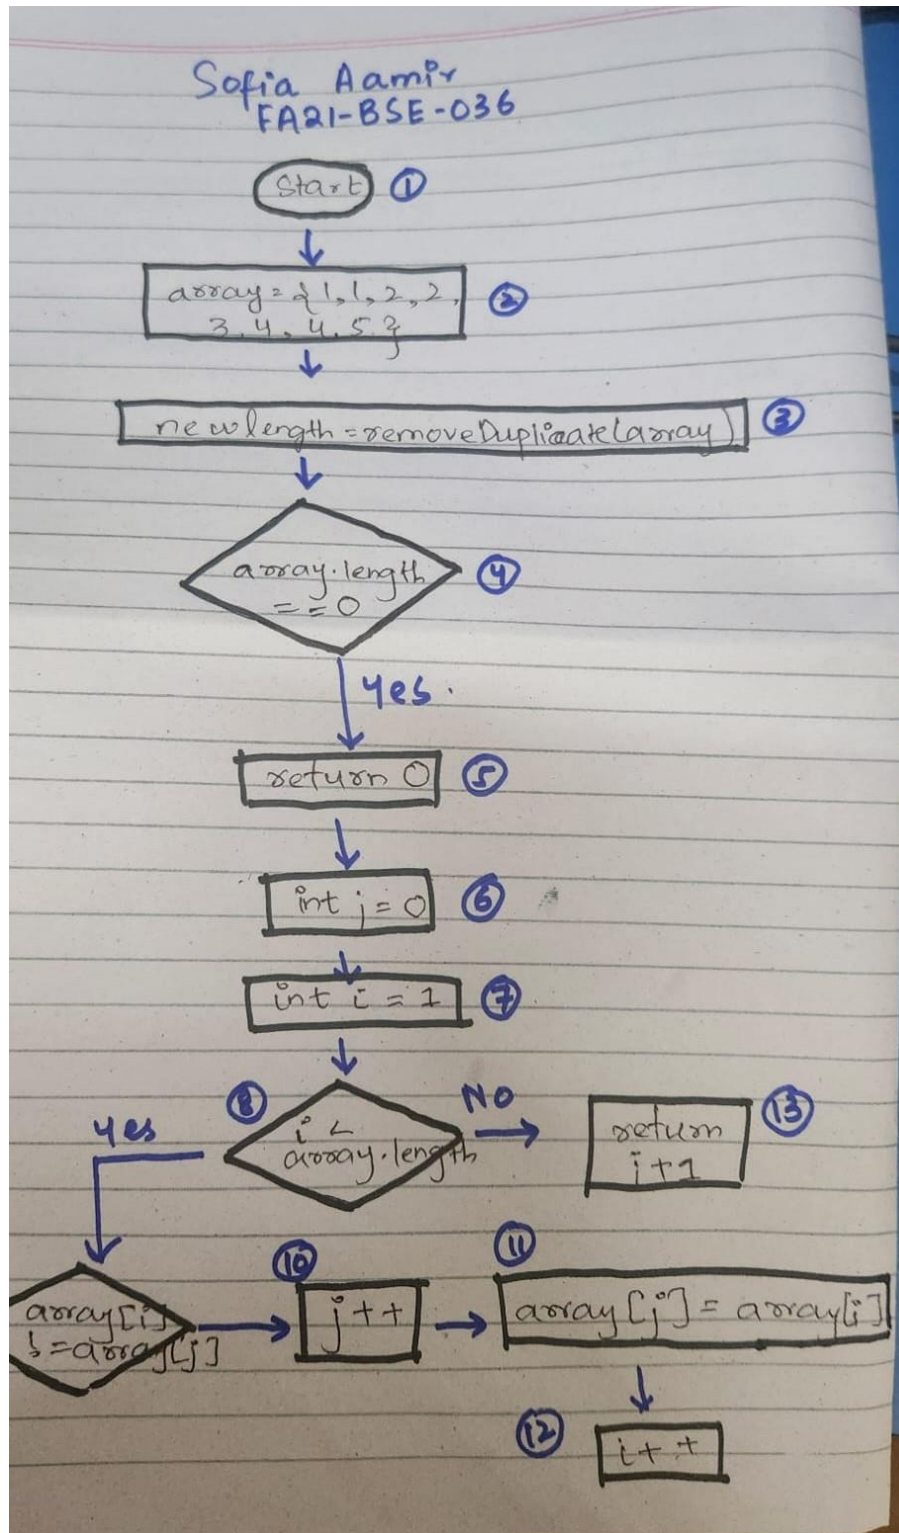 Sofia Aamir
FA21-BSE-036
Start ①
array = {1, 1, 2, 2,
3, 4, 4, 5}
②
newlength = removeDuplicate(array)
③
array.length
= = 0
④
Yes.
return 0 ⑤
int j = 0 ⑥
int i = 1 ⑦
⑧
i <
array.length
Yes
No
return
j+1
⑬
array[i]
!=array[j]
⑩
j++
⑪
array[j] = array[i]
⑫
i++